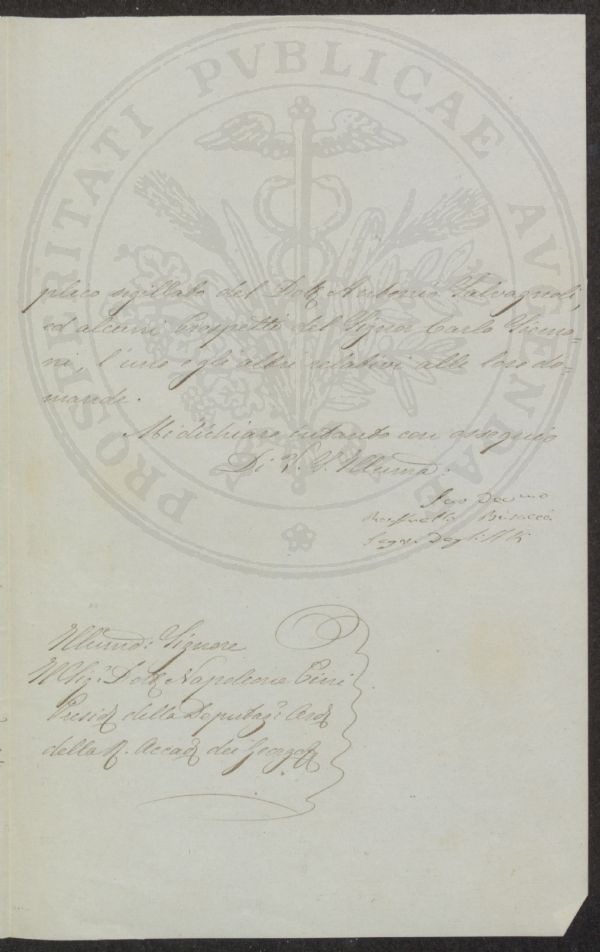 PROSPERITATI PVBLICAE AVGENDAE
plico sigillato del Dott. Antonio Salvagnoli,
ed alcuni Prospetti del Signor Carlo Siemo=
ni, l'uno e gli altri relativi alle loro do=
mande.
Mi dichiaro intanto con ossequio
Di V. S. Illuma.
Suo Devmo
Raffaello
Segr. degli Atti
Illumo: Signore
Il Sigr. Dott Napoleone Pini
Presid della Deputaz: Ord
della R. Accad dei Georgof